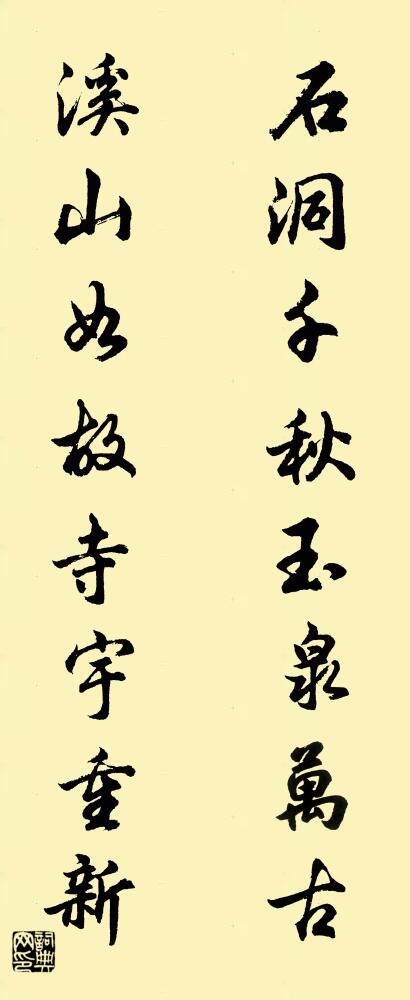 石洞千秋玉泉萬古
溪山如故寺宇重新
詞典网印